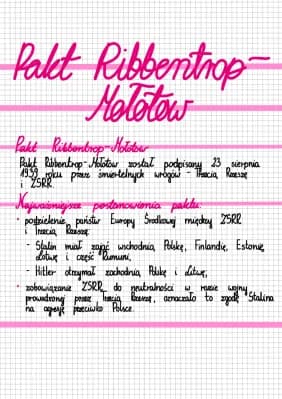 Pakt Ribbentrop-
Mołotow
Pakt Ribbentrop-Mołotow
Pakt Ribbentrop-Mołotow został podpisany 23 sierpnia
1939 roku przez śmiertelnych wrogów - Trzecią Rzeszę
i ZSRR.
Najważniejsze postanowienia paktu:
• podzielenie państw Europy Środkowej między ZSRR
i Trzecią Rzeszę:
- Stalin miał zająć wschodnią Polskę, Finlandię, Estonię,
Łotwę i część Rumunii,
- Hitler otrzymał zachodnią Polskę i Litwę,
• zobowiązanie ZSRR do neutralności w razie wojny
prowadzonej przez Trzecią Rzeszę, oznaczało to zgodę Stalina
na agresję przeciwko Polsce.